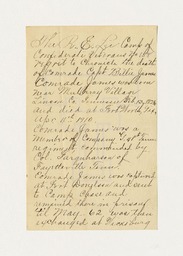 The R. E. Lee Camp of
Confederate Veterans of
regret to Chronicle the death
of Comrade Capt Billie James
Comrade James was born
near Mulberry Village
Lincoln Co Tennessee
and died at Fort Worth, Tex,
1910.
Comrade James was a
Member of Company
regiment commanded by
Col. Farquharson of
Fayetteville Tenn.
Comrade James was captured
at Fort Donelson and sent
to Camp Chase and
remained there in prison
till May, 62 was then
exchanged at Vicksburg